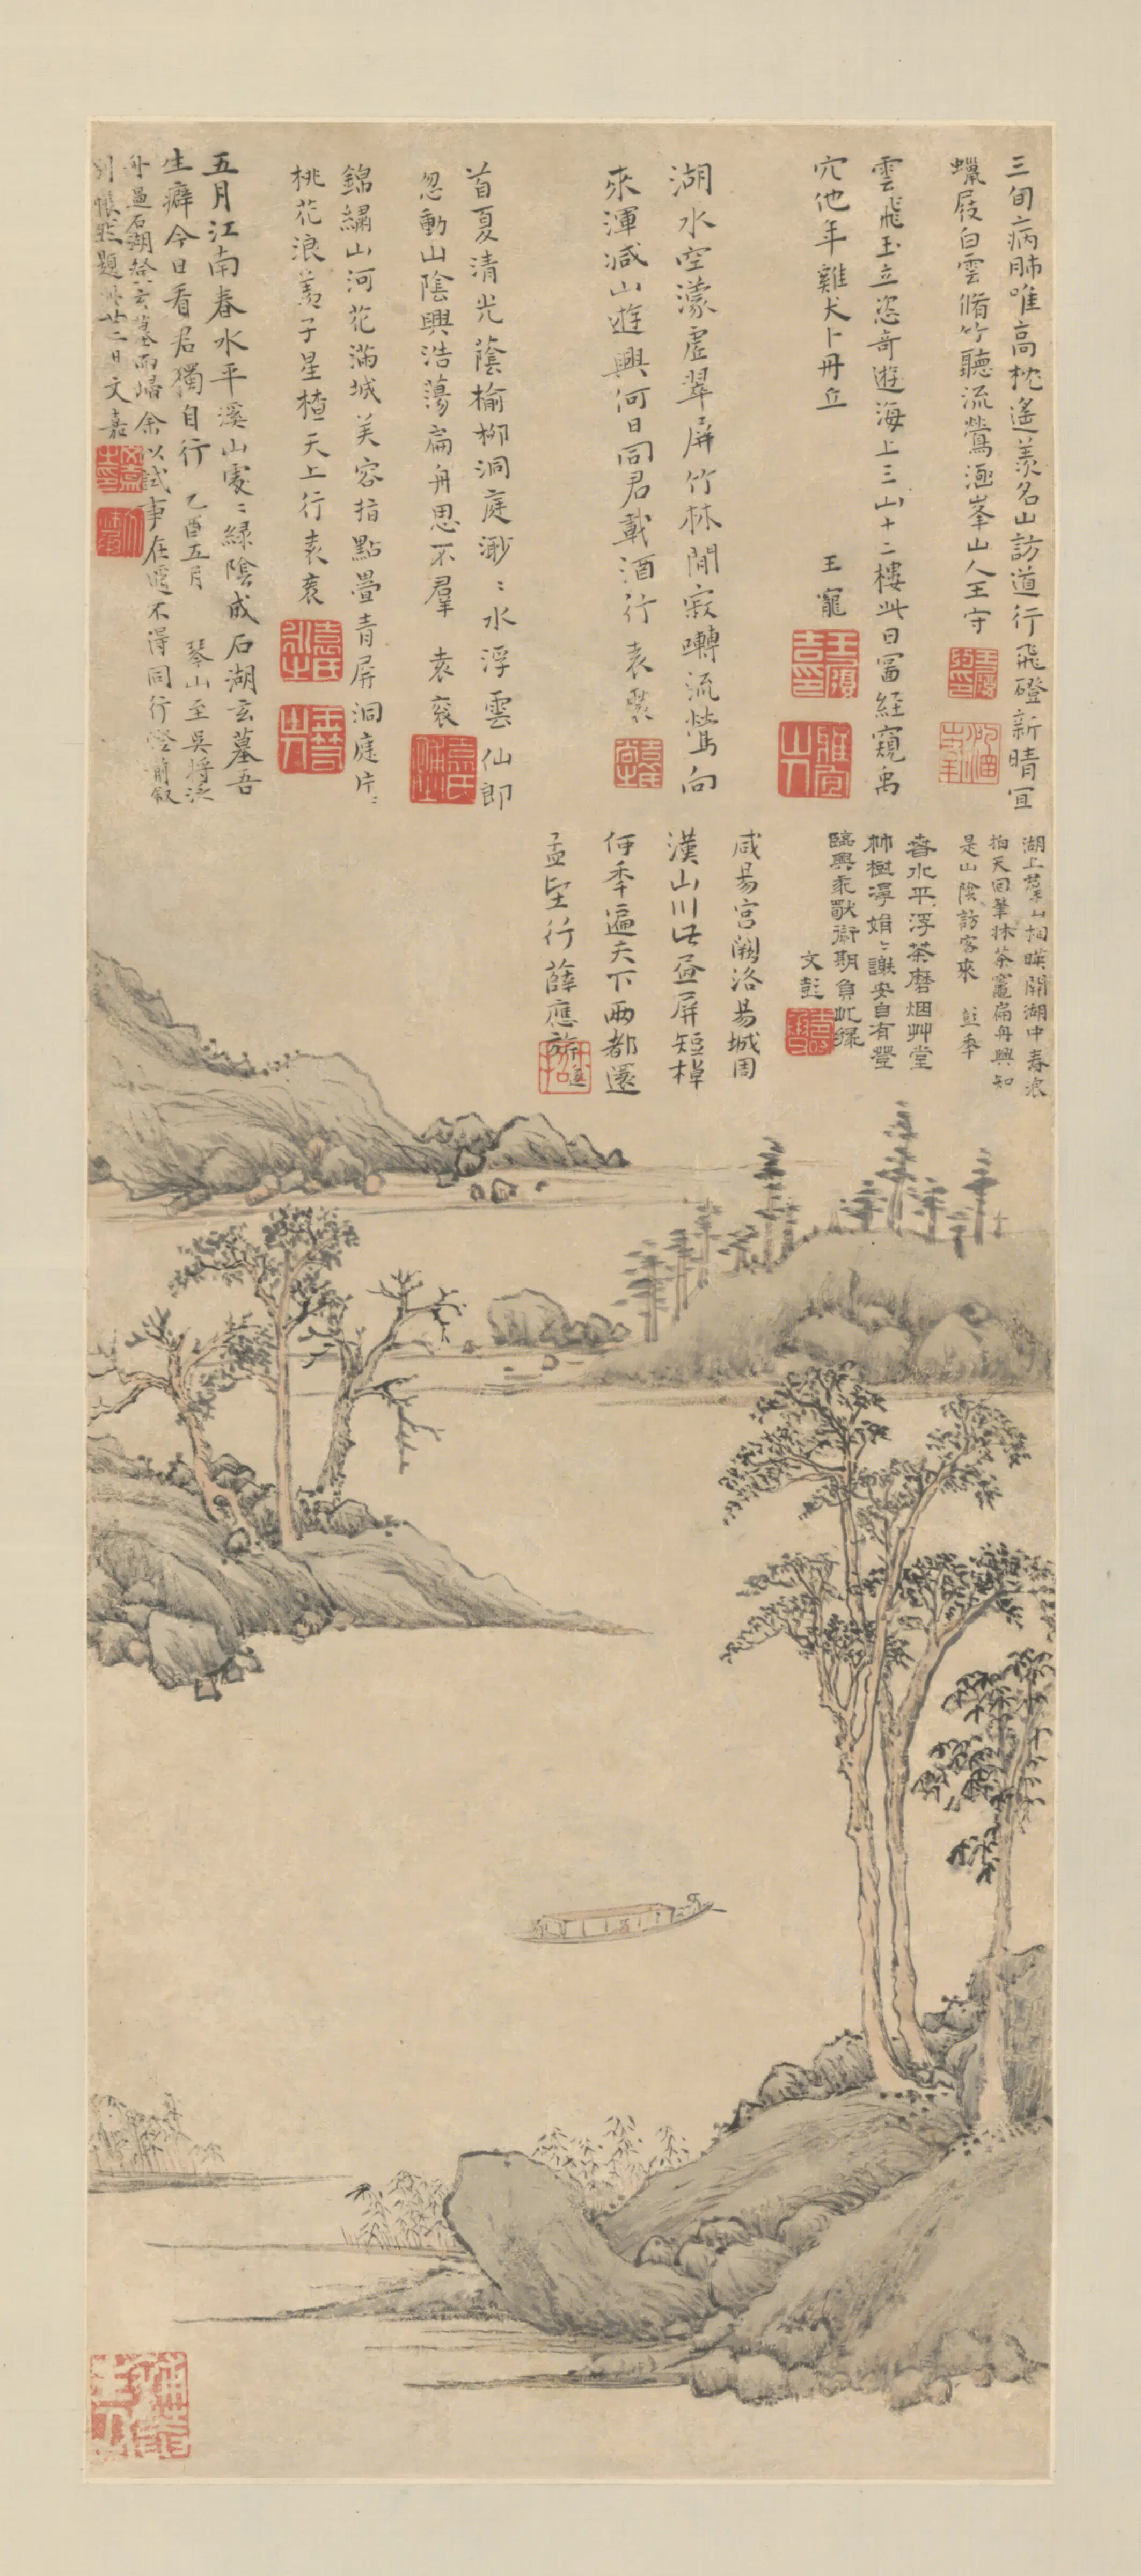 三旬病肺唯高枕遙羨名山訪道行飛磴新晴宜
蠟屐白雲脩竹聽流鶯涵峯山人王守
雲飛玉立恣奇遊海上三山十二樓此日冨經窺禹
穴他年雞犬卜丹丘
王寵
湖水空濛虛翠屏竹林閒寂囀流鶯向
來渾減山遊興何日同君載酒行 袁褧
首夏清光蔭榆柳洞庭渺〻水浮雲仙郎
忽動山陰興浩蕩扁舟思不羣 袁袠
錦繡山河花滿城美容指點疊青屏洞庭片〻
桃花浪羨子星楂天上行袁袤
五月江南春水平溪山處〻綠陰成石湖玄墓吾
生癖今日看君獨自行 乙酉五月 琴山至吳將泛
舟過石湖登玄墓而歸余以試事在邇不得同行燈前叙
別悵然題 廿二日文嘉
湖上羣山相暎開湖中春浪
拍天回筆牀茶竈扁舟興知
是山陰訪客來 彭年
春水平浮茶磨烟艸堂
林樹淨娟〻謝安自有登
臨興乘 期負此緣
文彭
咸昜宮闕洛昜城周
漢山川 屏短棹
何年遍天下兩都還
孟堅行 薛應